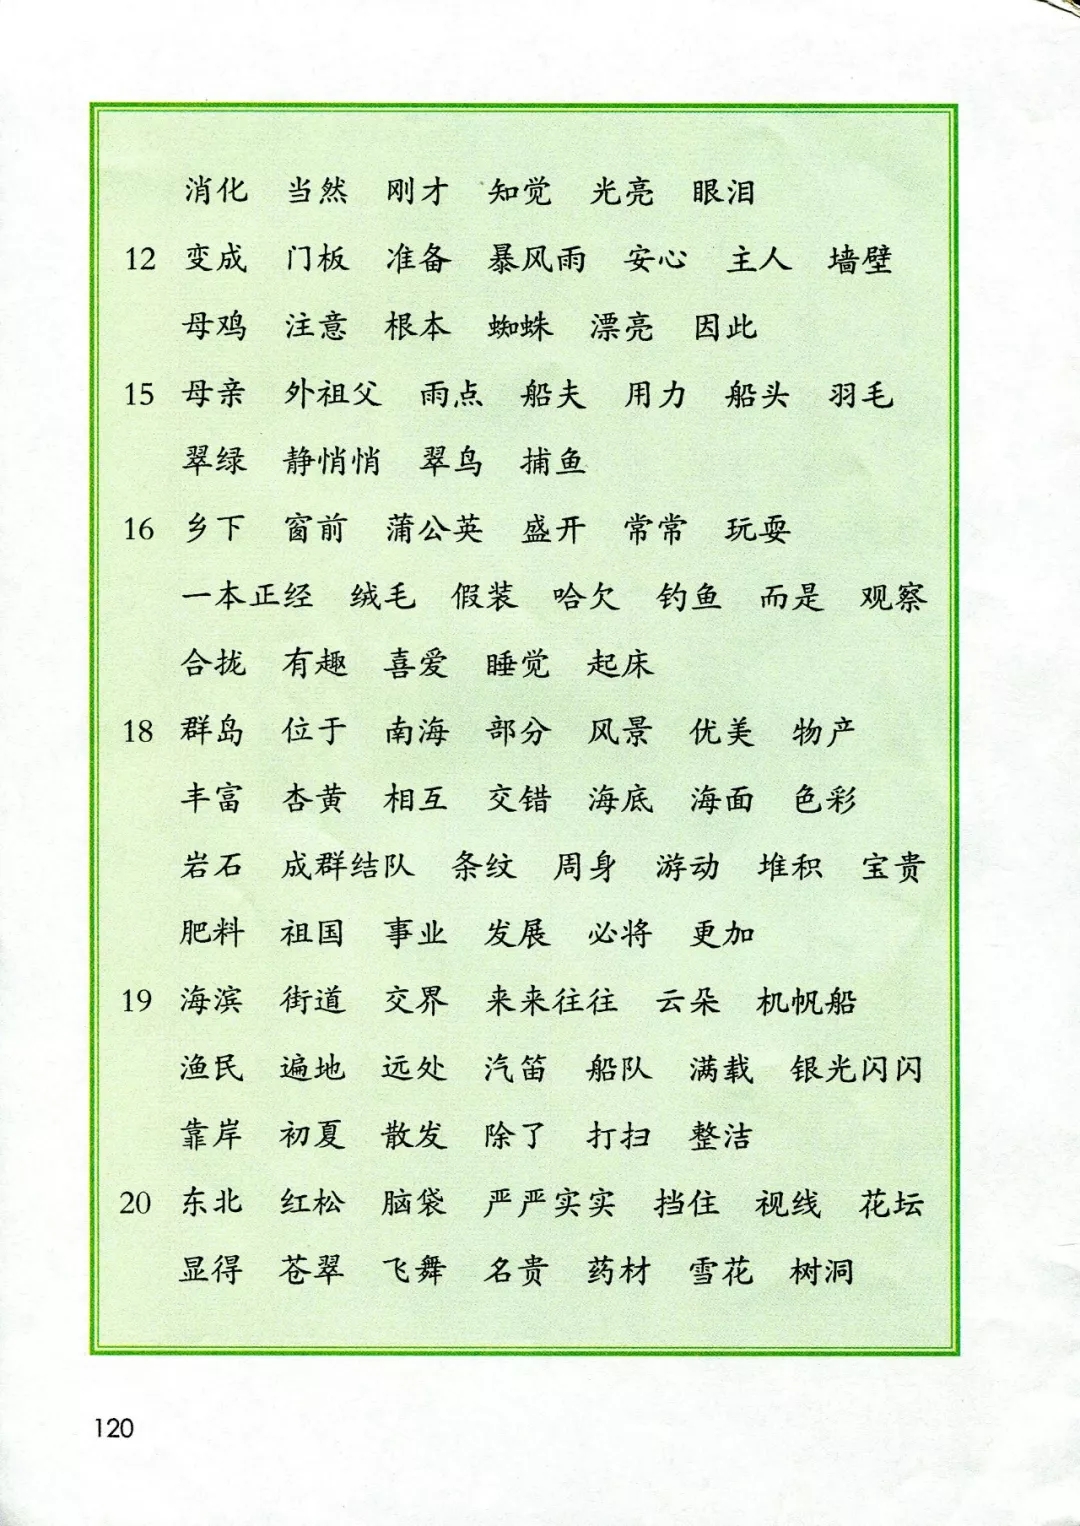 消化 当然 刚才 知觉 光亮 眼泪
12 变成 门板 准备 暴风雨 安心 主人 墙壁
母鸡 注意 根本 蜘蛛 漂亮 因此
15 母亲 外祖父 雨点 船夫 用力 船头 羽毛
翠绿 静悄悄 翠鸟 捕鱼
16 乡下 窗前 蒲公英 盛开 常常 玩耍
一本正经 绒毛 假装 哈欠 钓鱼 而是 观察
合拢 有趣 喜爱 睡觉 起床
18 群岛 位于 南海 部分 风景 优美 物产
丰富 杏黄 相互 交错 海底 海面 色彩
岩石 成群结队 条纹 周身 游动 堆积 宝贵
肥料 祖国 事业 发展 必将 更加
19 海滨 街道 交界 来来往往 云朵 机帆船
渔民 遍地 远处 汽笛 船队 满载 银光闪闪
靠岸 初夏 散发 除了 打扫 整洁
20 东北 红松 脑袋 严严实实 挡住 视线 花坛
显得 苍翠 飞舞 名贵 药材 雪花 树洞
120